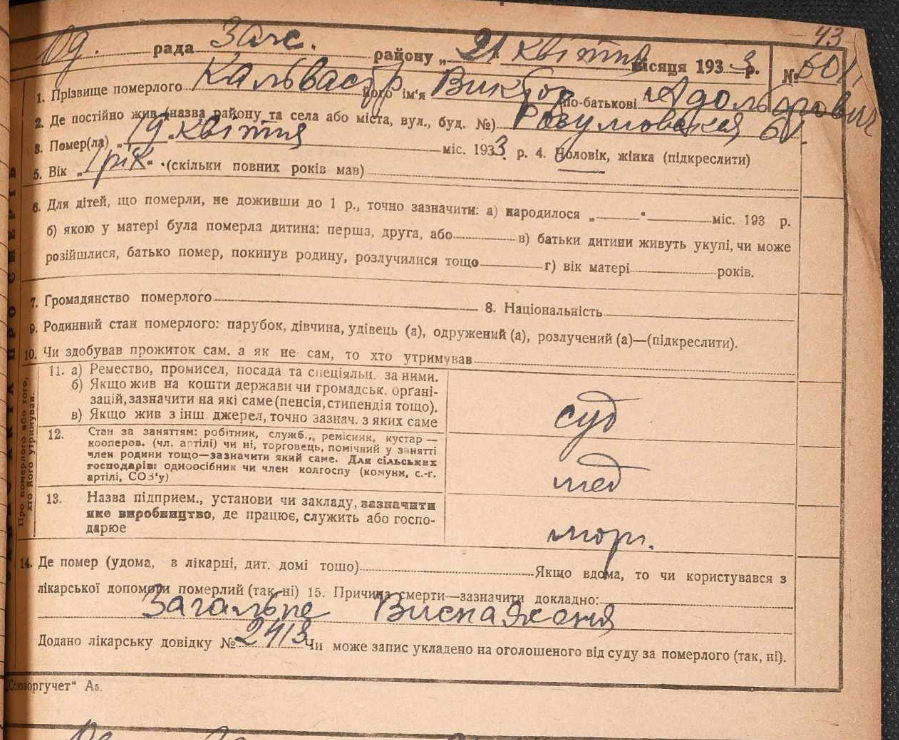 43
Од. рада Заст. району „ 21 " квітня місяця 193 3 р. №
1. Прізвище померлого його ім'я Виктор по-батькові Адольфович
2. Де постійно жив (назва району та села або міста, вул., буд. №) Розумовская 61.
3. Помер(ла) „ 19 квітня міс. 1933 р. 4. Чоловік, жінка (підкреслити)
5. Вік „ 1 рік " (скільки повних років мав)
6. Для дітей, що померли, не доживши до 1 р., точно зазначити: а) народилося „ " міс. 193 р.
б) якою у матері була померла дитина: перша, друга, або в) батьки дитини живуть укупі, чи може
розійшлися, батько помер, покинув родину, розлучилися тощо г) вік матері років.
7. Громадянство померлого 8. Національність
9. Родинний стан померлого: парубок, дівчина, удівець (а), одружений (а), розлучений (а)—(підкреслити).
10. Чи здобував прожиток сам, а як не сам, то хто утримував
Про померлого або того,
хто його утримував.
11. а) Ремество, промисел, посада та спеціяльн. за ними.
б) Якщо жив на кошти держави чи громадськ. органі-
зацій, зазначити на які саме (пенсія, стипендія тощо).
в) Якщо жив з інш. джерел, точно зазнач. з яких саме
суд
12. Стан за заняттям: робітник, служб., ремісник, кустар —
кооперов. (чл. артілі) чи ні, торговець, помічний у занятті
член родини тощо—зазначити який саме. Для сільських
господарів: одноосібник чи член колгоспу (комуни, с.-г.
артілі, СОЗ'у)
мед
13. Назва підприєм., установи чи закладу, зазначити
яке виробництво, де працює, служить або госпо-
дарює
морг.
14. Де помер (удома, в лікарні, дит. домі тощо) Якщо вдома, то чи користувався з
лікарської допомоги померлий (так, ні) 15. Причина смерти—зазначити докладно:
Загальне Виснаження
Додано лікарську довідку № 2413 Чи може запис укладено на оголошеного від суду за померлого (так, ні).
„Союзоргучет" А5.